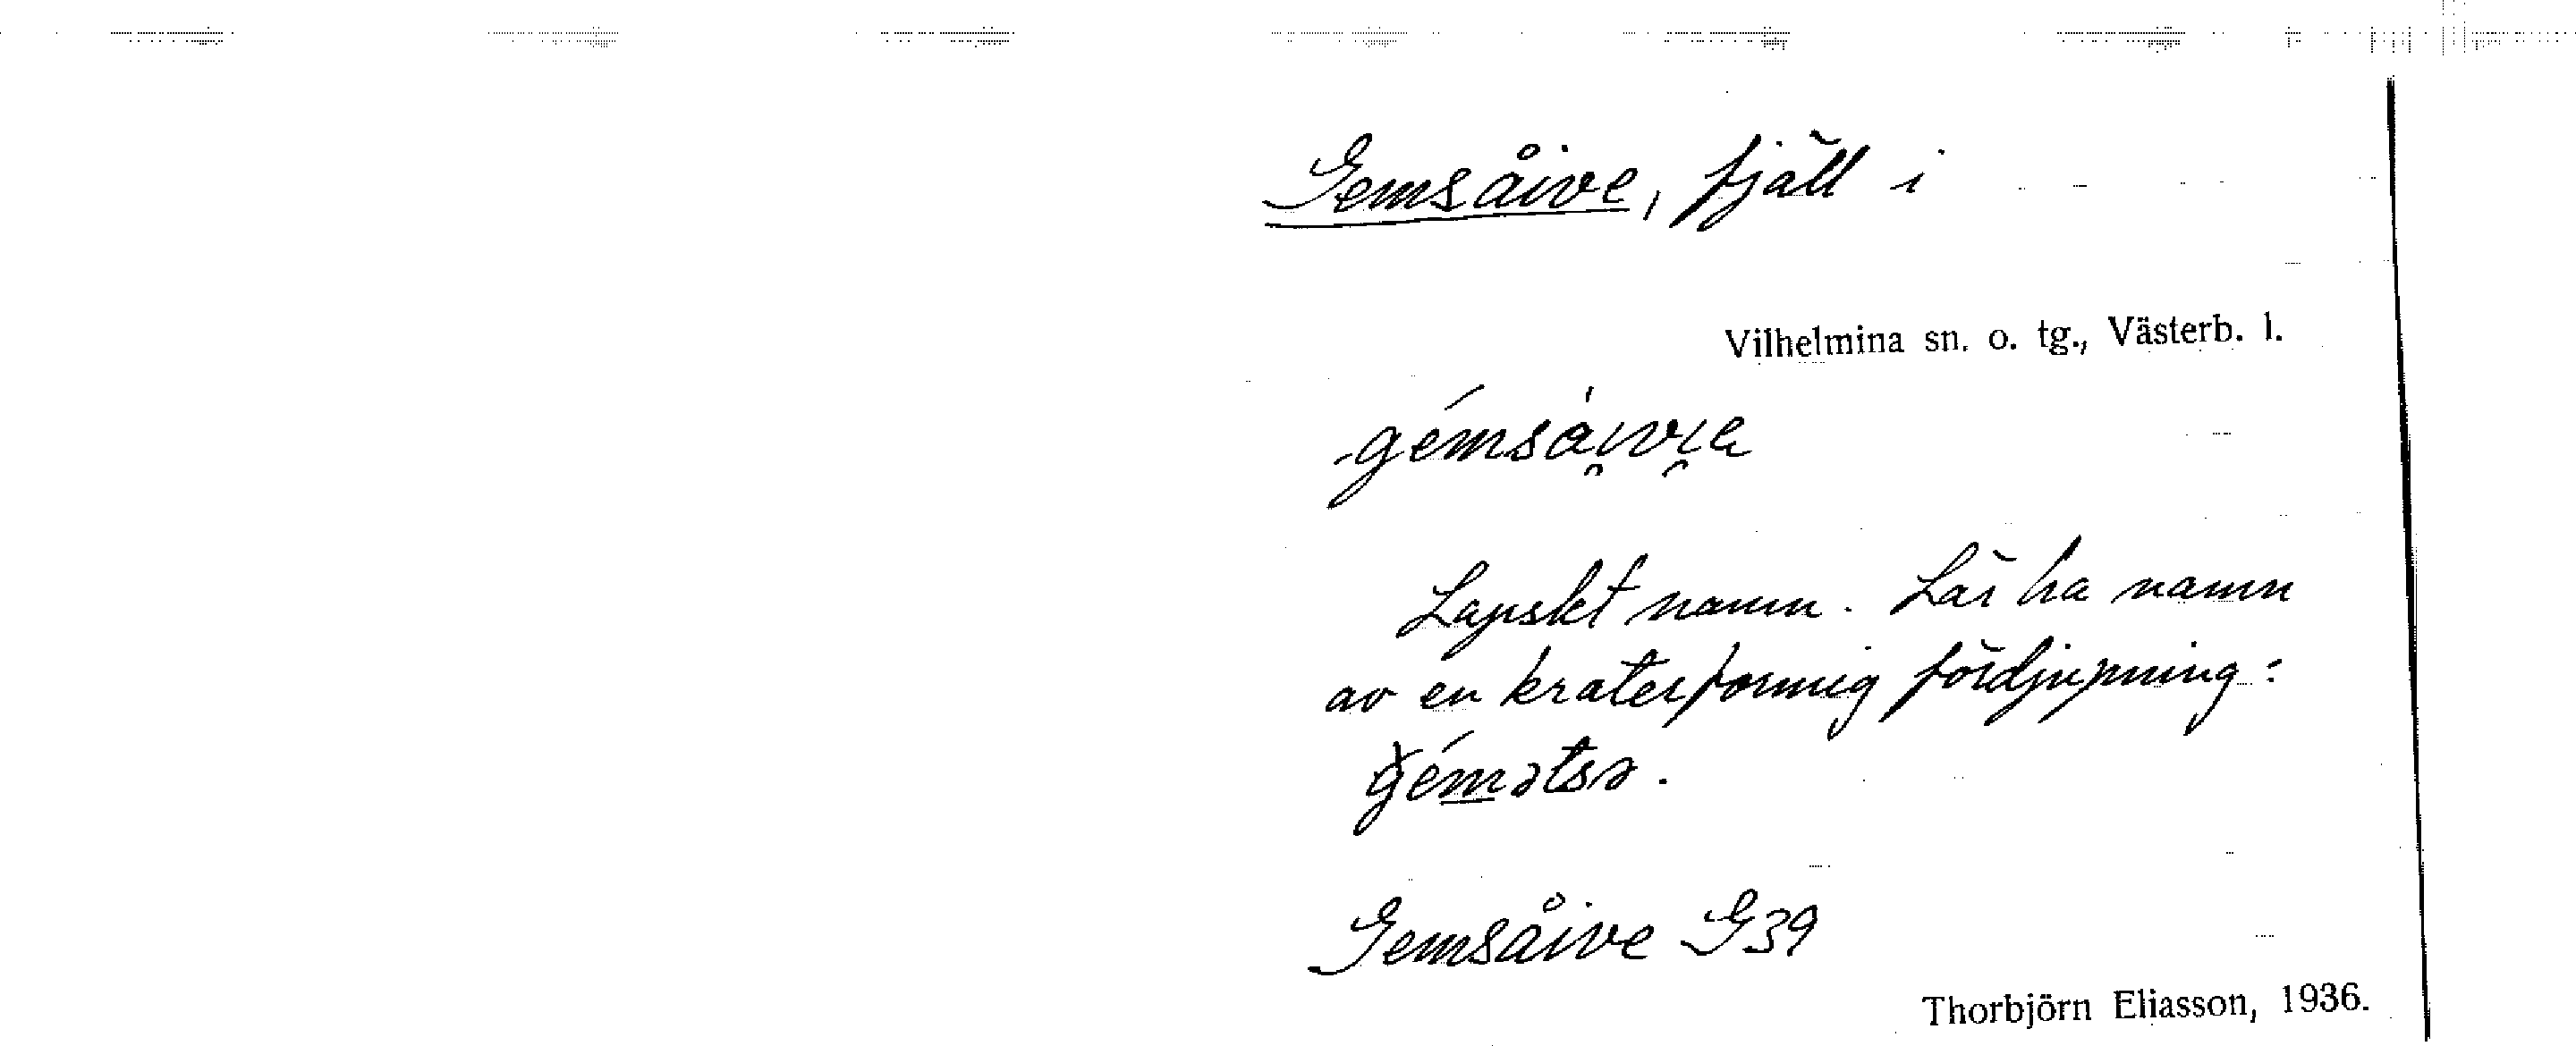 Gemsåive, fjäll i
Vilhelmina sn. o. tg., Västerb. l.
Lapskt namn. Lär ha namn
av en kraterformig fördjupning:
gémətsə.
Gemsåive G39
Thorbjörn Eliasson, 1936.